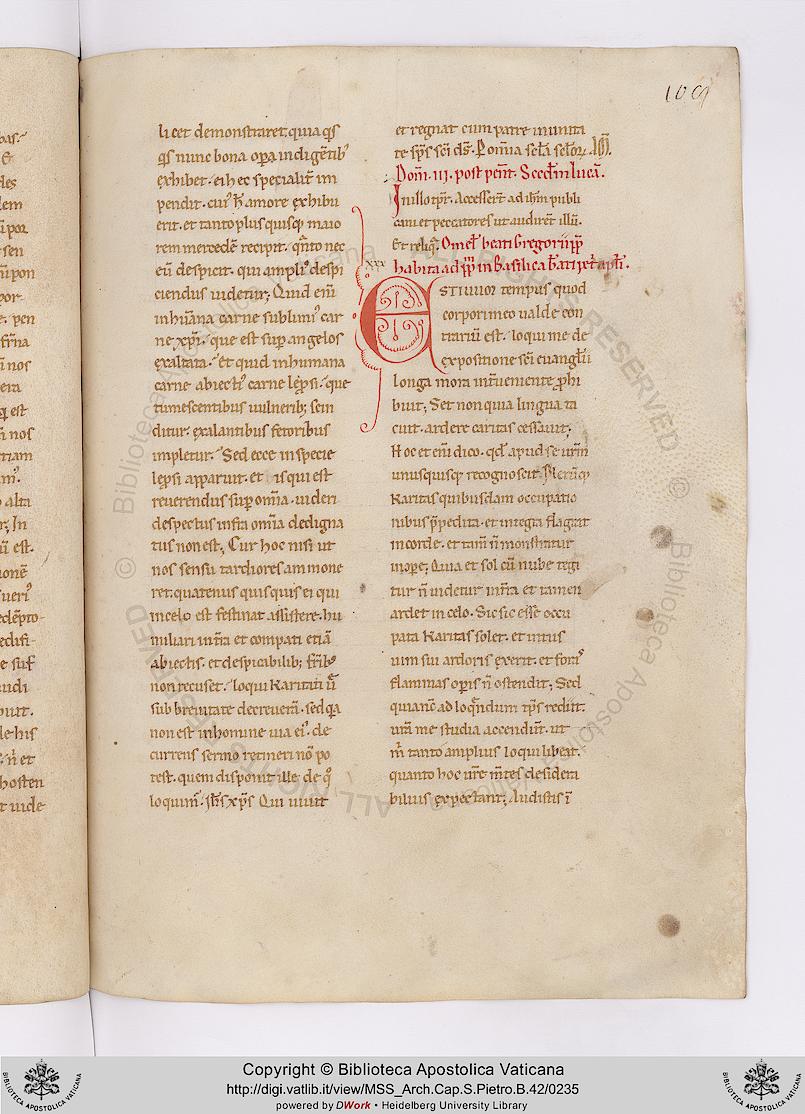 109
licet demonstraret. quia q̄s
q̄s nunc bona opera indigētibꝰ
exhibet. ei hec specialit̄ im
pendit. cuiꝰ h̄ amore exhibu
erit. et tanto plus quisq; maio
rem mercedē recipit. q̄nto nec
eū despicit. qui ampliꝰ despi
ciendus uidetur; Quid eni
in huāna carne sublimiꝰ car
ne xp̄i. que est sup̄ angelos
exaltata. Et quid in humana
carne abiectiꝰ carne lep̄si. que
tumescentibus uulnerib; scin
ditur. exalantibus fetoribus
impletur. Sed ecce in specie
lep̄si apparuit. et is qui est
reuerendus sup̄ om̄ia. uideri
despectus infra om̄ia dedigna
tus non est; Cur hoc nisi ut
nos sensu tardiores ammone
ret. quatenus quisquis ei qui
in celo est festinat assistere. hu
miliari int̄ra et compati etiā
abiectis. et despicibilib; fr̄ibꝰ
non recuset. loqui Karitati ur̄e
sub breuitate decreuerā. sed q̄a
non est in homine uia eiꝰ. de
currens sermo retineri nō po
test. quem disponit ille de qͦ
loquim̄. ih̄s xp̄s Qui uiuit
et regnat cum patre in unita
te sp̄s sc̄i d̄s. P om̄ia sc̄la sc̄lor̄. AM̄.
Dom̄. III. post pent̄. Secd̄m lucā.
In illo tp̄r. Accesser̄t ad ih̄m publi
cani et peccatores ut audirēt illū.
Et reliq̄. Omel̄ beati Gregorii p̄p̄
habita ad p̄p̄m in basilica b̄ati ioh̄s
XXX
ESTIUUM tempus quod
corpori meo ualde con
trariū est. loqui me de
expositione sc̄i euangl̄ii
longa mora int̄ueniente p̄hi
buit; Set non quia lingua ta
cuit. ardere caritas cessauit;
Hoc et eni dico. qd̄ apud se ur̄m
unusquisq; recognoscit. Plerūq;
Karitas quibusdam occupatio
nibus p̄pedita. et integra flagrat
in corde. et tam̄ n̄ monstratur
in opere; Quia et sol cū nube tegi
tur n̄ uidetur in t̄ra et tamen
ardet in celo. Sic sic esse occu
pata Karitas solet. et intus
uim sui ardoris exerit. et foriꝰ
flammas op̄is n̄ ostendit; Sed
quia nc̄ ad loq̄ndum tp̄s rediit.
ur̄a me studia accendūt. ut
m̄ tanto amplius loqui libeat.
quanto hoc ur̄e m̄tes desidera
bilius expectant; Audistis ī
Copyright © Biblioteca Apostolica Vaticana
http://digi.vatlib.it/view/MSS_Arch.Cap.S.Pietro.B.42/0235
powered by DWork • Heidelberg University Library